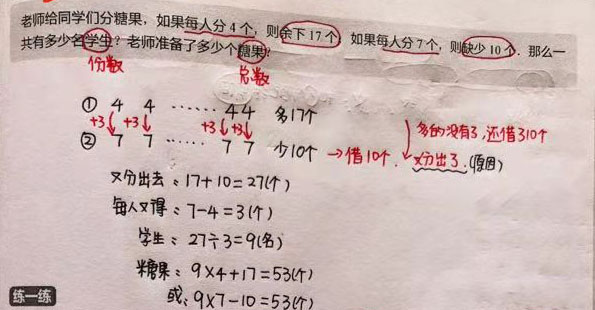 老师给同学们分糖果，如果每人分 4 个，则余下 17 个，如果每人分 7 个，则缺少 10 个．那么一
共有多少名学生？老师准备了多少个糖果？
份数 总数
① 4 4 …… 4 4 多17个
+3 +3 +3 +3 多的没有了,还借了10个
② 7 7 …… 7 7 少10个 →借10个. 又分出了.(原因)
又分出去：17+10=27(个)
每人又得：7-4=3(个)
学生：27÷3=9(名)
糖果：9×4+17=53(个)
或：9×7-10=53(个)
练一练